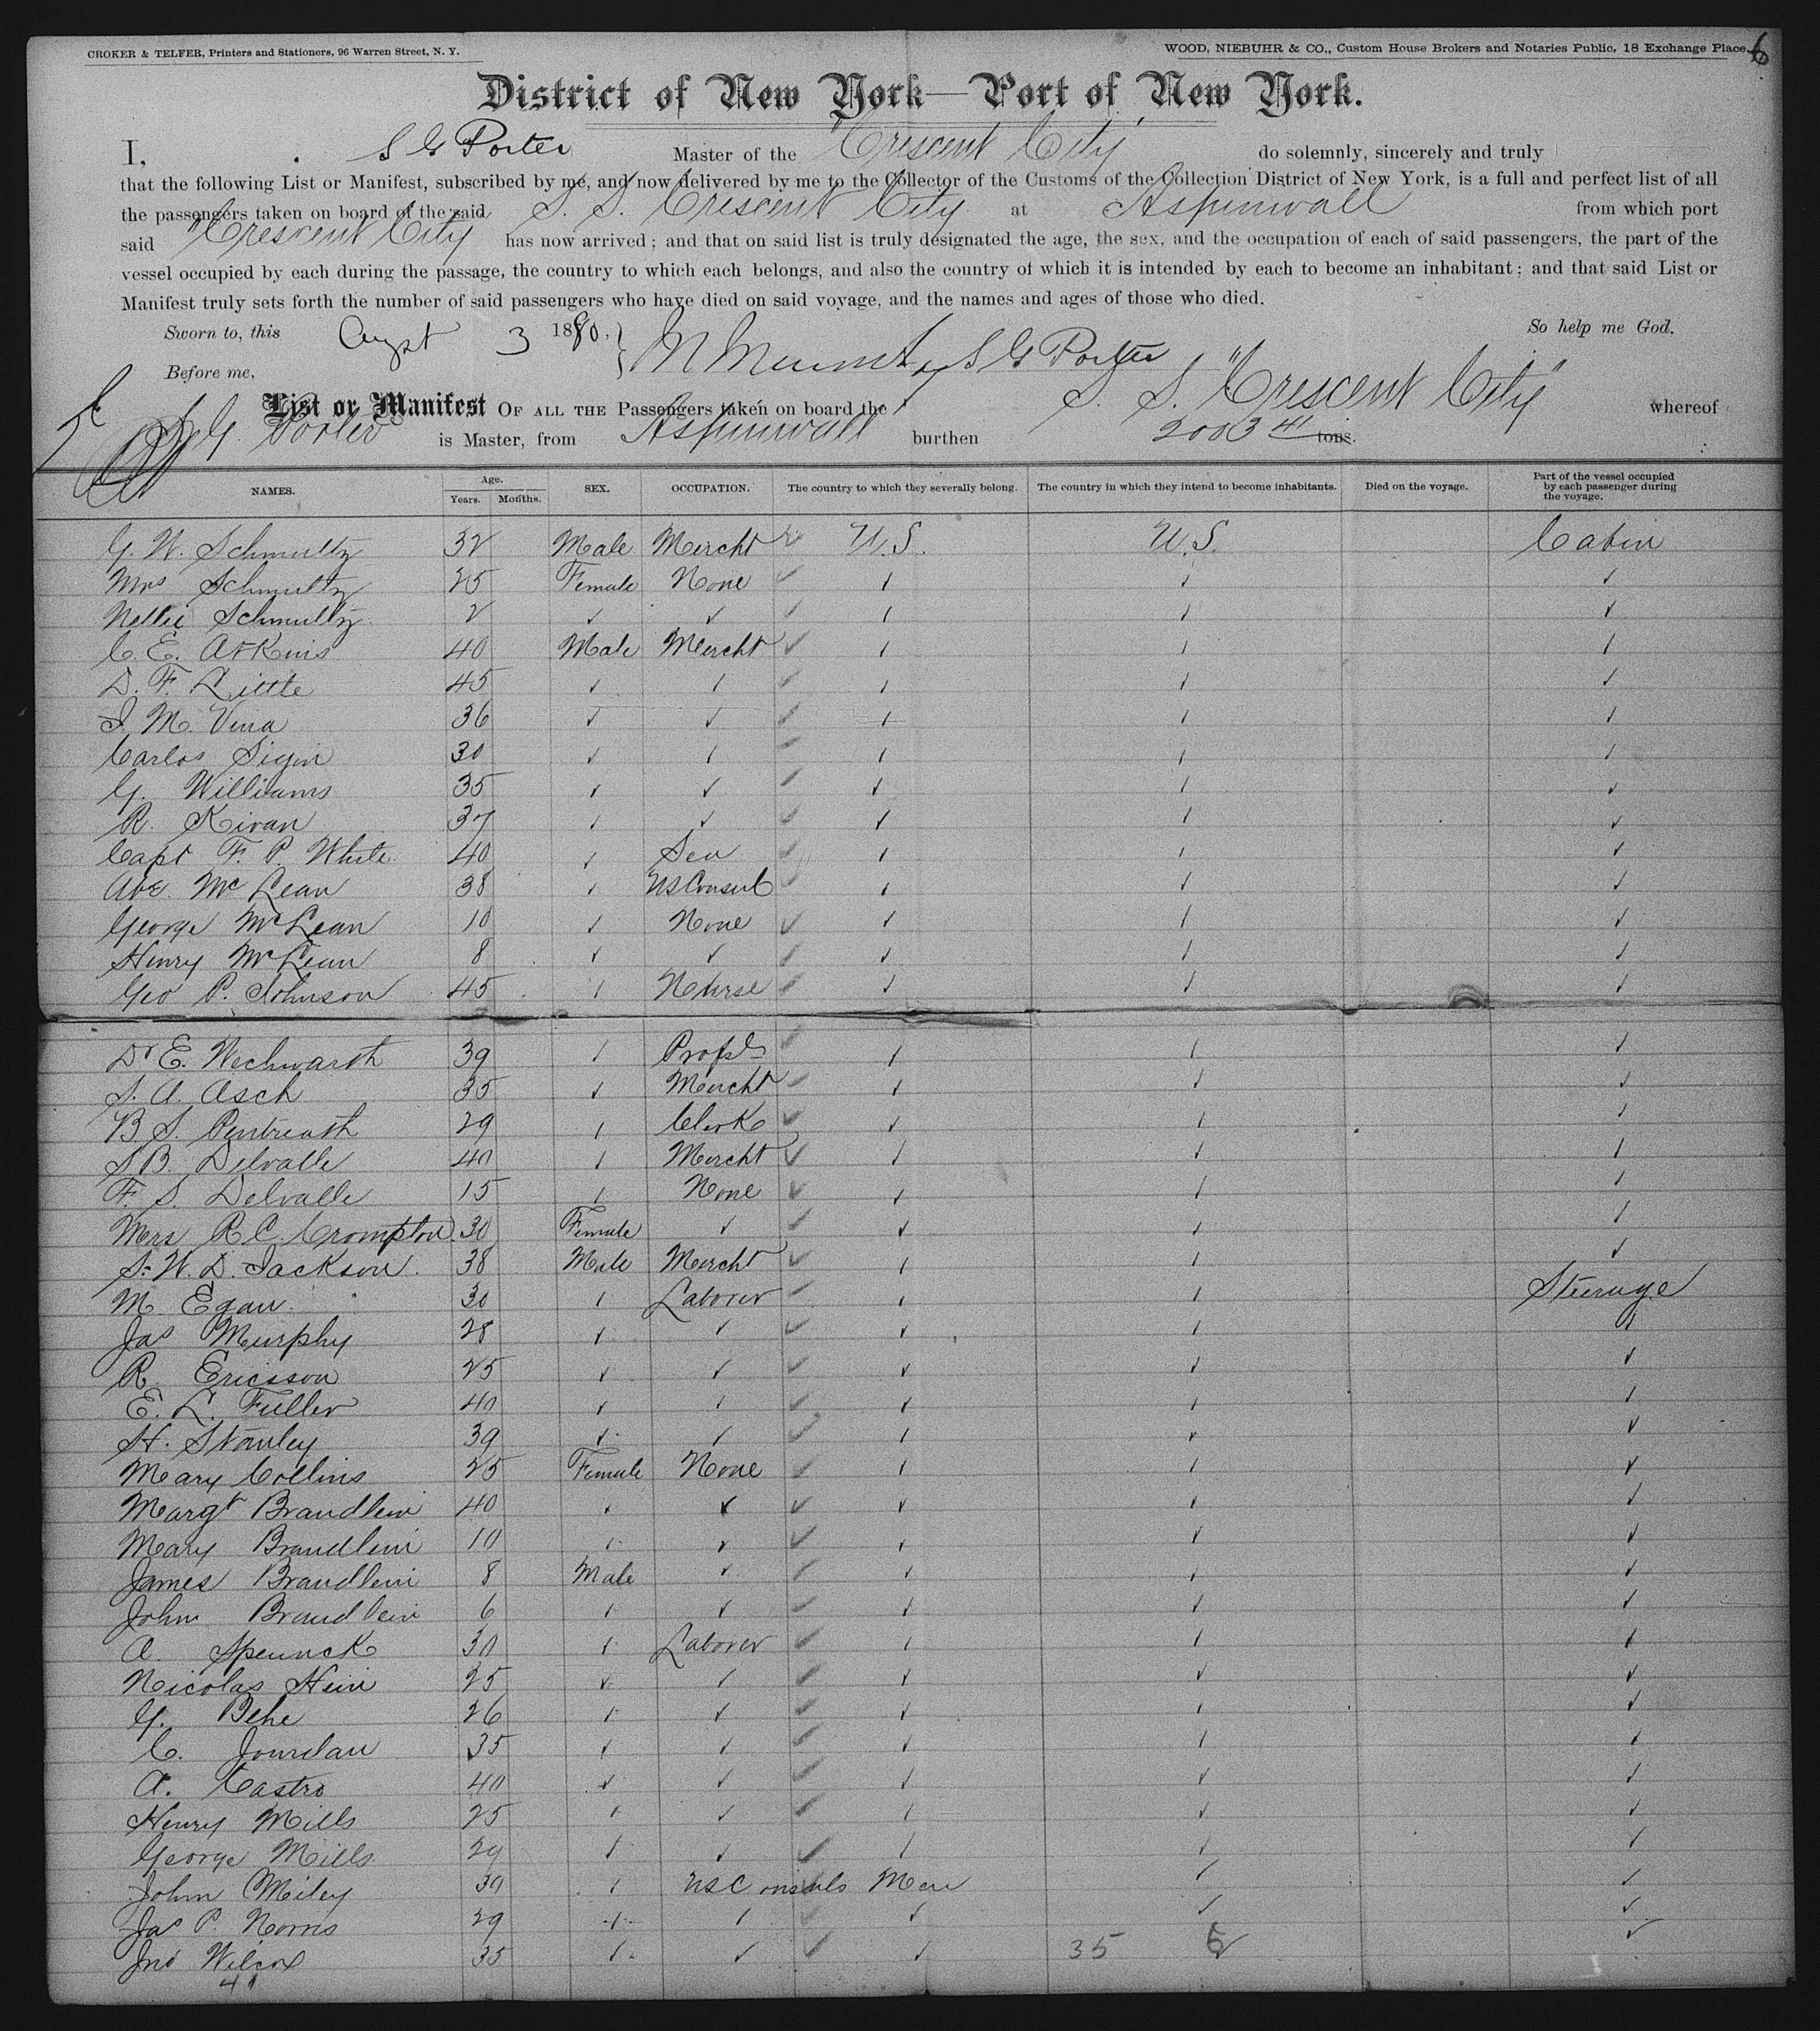 CROKER & TELFER, Printers and Stationers, 96 Warren Street, N. Y.
WOOD, NIEBUHR & CO., Custom House Brokers and Notaries Public, 18 Exchange Place. 6
District of New York—Port of New York.
I, S G Porter Master of the "Crescent City" do solemnly, sincerely and truly
that the following List or Manifest, subscribed by me, and now delivered by me to the Collector of the Customs of the Collection District of New York, is a full and perfect list of all
the passengers taken on board of the said S. S. Crescent City at Aspinwall from which port
said "Crescent City has now arrived; and that on said list is truly designated the age, the sex, and the occupation of each of said passengers, the part of the
vessel occupied by each during the passage, the country to which each belongs, and also the country of which it is intended by each to become an inhabitant; and that said List or
Manifest truly sets forth the number of said passengers who have died on said voyage, and the names and ages of those who died.
Sworn to, this Augst 3 1880. So help me God.
Before me, S G Porter
List or Manifest OF ALL THE Passengers taken on board the S. S. "Crescent City" whereof
S. G. Porter is Master, from Aspinwall burthen 2003 41 tons.
NAMES. Age. Years. Months. SEX. OCCUPATION. The country to which they severally belong. The country in which they intend to become inhabitants. Died on the voyage. Part of the vessel occupied by each passenger during the voyage.
G. W. Schmultz 32 Male Mercht U.S. U.S. Cabin
Mrs Schmultz 25 Female None
Nellie Schmultz 2
C. E. Atkins 40 Male Mercht
D. F. Little 45
J. M. Vina 36
Carlos 30
G. Williams 35
R. Kivan 37
Capt F. P. White 40 Sea
Abe McLean 38 US Consul
George McLean 10 None
Henry McLean 8
Geo P. Johnson 45 Nurse
Dr E. Wechwarth 39 Profsl
S. A. Asch 35 Mercht
B. S. Pentreath 29 Clerk
S. B. Delvalle 40 Mercht
F. S. Delvalle 15 None
Mrs R C. Crompton 30 Female
S. W. D. Jackson 38 Male Mercht
M. Egan 30 Laborer Steerage
Jas Murphy 28
R. Ericsson 25
E. L. Fuller 40
H. Stanley 39
Mary Collins 25 Female None
Margt Brandlein 40
Mary Brandlein 10
James Brandlein 8 Male
John Brandlein 6
A. Spennck 30 Laborer
Nicolas Hein 25
G. Behe 26
C. Jourdan 35
A. Castro 40
Henry Mills 25
George Mills 29
John Miley 30 US Consuls Men
Jas P. Norris 29
Jno Wilcox 35
41 35 6